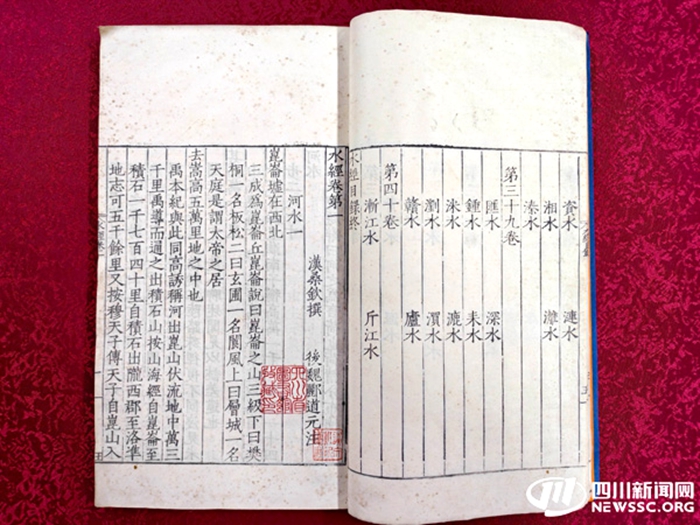 資水 漣水
湘水 灕水
溱水
第三十九卷
匯水 深水
鍾水 耒水
洣水 漉水
瀏水
贛水 廬水
第四十卷
漸江水 斤江水
水經目錄終
水經卷第一
漢桑欽撰 後魏酈道元注
河水一
崑崙墟在西北
三成為崑崙丘崑崙說曰崑崙之山三級下曰樊
桐一名板松二曰玄圃一名閬風上曰層城一名
天庭是謂太帝之居
去嵩高五萬里地之中也
禹本紀與此同高誘稱河出崑山伏流地中萬三
千里禹導而通之出積石山按山海經自崑崙至
積石一千七百四十里自積石出隴西郡至洛準
地志可五千餘里又按穆天子傳天子自崑山入
四川新闻网
NEWSSC.ORG